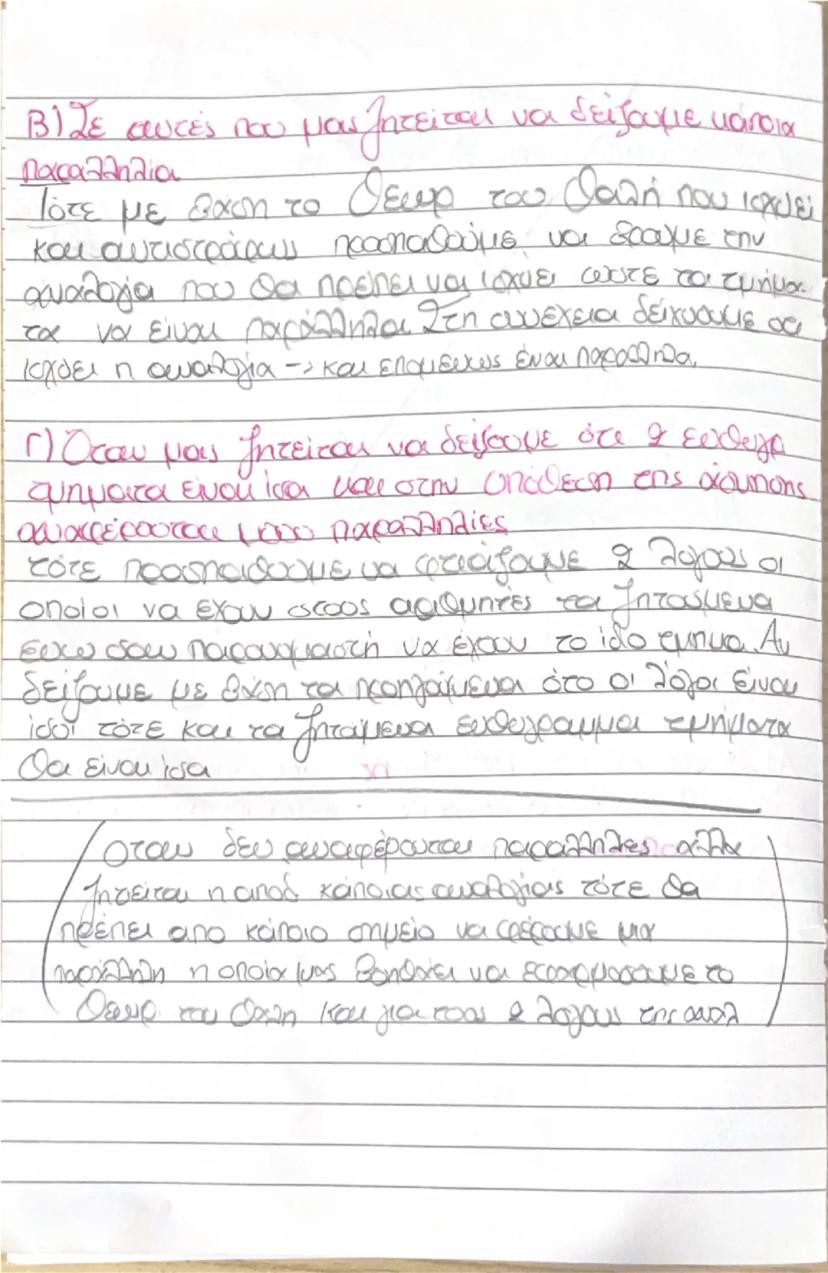 Β) Σε αυτές που μας ζητείται να δείξουμε κάποια
παραλληλία
Τότε με βάση το Θεωρ του Θαλή που ισχύει
και αντιστρόφως προσπαθούμε να βρούμε την
αναλογία που θα πρέπει να ισχύει ώστε τα τμήμα
τα να είναι παράλληλα. Στη συνέχεια δείχνουμε οτι
ισχύει η αναλογία -> και επομένως είναι παράλληλα.
Γ) Όταν μας ζητείται να δείξουμε ότι 2 ευθυγρ
τμηματα είναι ίσα και στην υπόθεση της άσκησης
αναφέρονται μόνο παραλληλίες
τότε προσπαθούμε να φτιάξουμε 2 λόγους οι
οποίοι να έχουν στους αριθμητές τα ζητούμενα
ενώ σαν παρανομαστή να έχουν το ιδιο τμημα. Αν
δείξουμε με βάση τα προηγούμενα ότο οι λόγοι είναι
ίδοι τότε και τα ζητάμενα ευθυγραμμα τμήματα
θα είναι ίσα
Οταν δεν αναφέρονται παραλληλες αλλα
ζητείται η αποδ κάποιας αναλογίας τότε θα
πρέπει απο κάποιο σημείο να φέρουμε μια
παράλληλη η οποία μας βοηθάει να εφαρμόσουμε το
Θεωρ του Θαλη και για τους 2 λόγους της αναλ